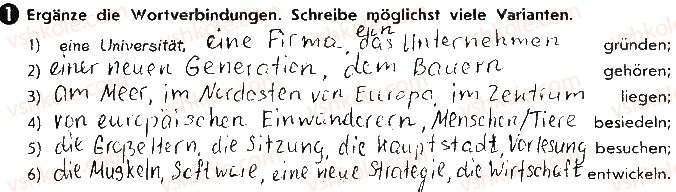 1 Ergänze die Wortverbindungen. Schreibe möglichst viele Varianten.
1) eine Universität, eine Firma, ein das Unternehmen gründen;
2) einer neuen Generation, dem Bauern gehören;
3) am Meer, im Nordosten von Europa, im Zentrum liegen;
4) von europäischen Einwanderern, Menschen/Tiere besiedeln;
5) die Großeltern, die Sitzung, die Hauptstadt, Vorlesung besuchen;
6) die Muskeln, Software, eine neue Strategie, die Wirtschaft entwickeln.